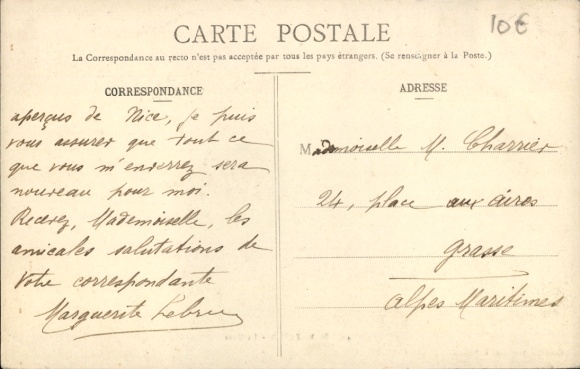 CARTE POSTALE
10€
La Correspondance au recto n'est pas acceptée par tous les pays étrangers. (Se renseigner à la Poste.)
CORRESPONDANCE
aperçus de Nice, je puis
vous assurer que tout ce
que vous m'enverrez sera
nouveau pour moi.
Recevez, Mademoiselle, les
amicales salutations de
votre correspondante
Marguerite Lebrun
ADRESSE
Mademoiselle M. Charrier
24, place aux aires
Grasse
Alpes Maritimes